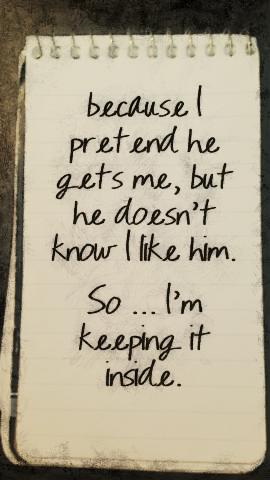 because I
pretend he
gets me, but
he doesn't
know I like him.
So ... I'm
keeping it
inside.